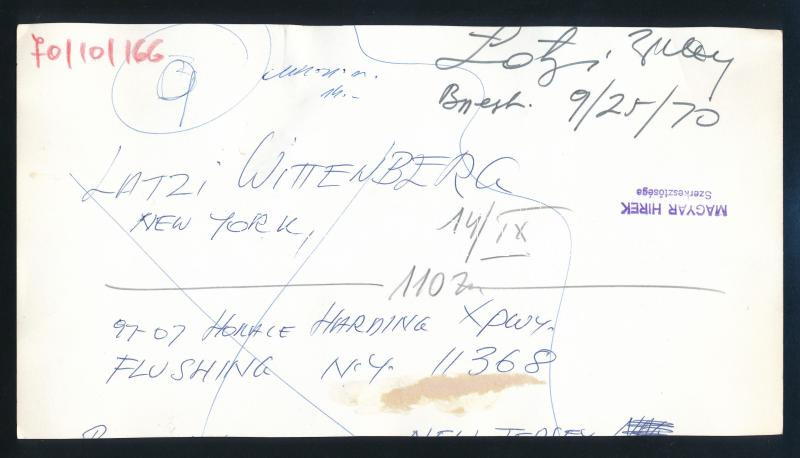 70/10/166
9
Bpest. 9/25/70
LATZI WITTENBERG
NEW YORK,
14/IX
MAGYAR HIREK
Szerkesztősége
110
97-07 HORACE HARDING XPWY.
FLUSHING N.Y. 11368
NEW JERSEY